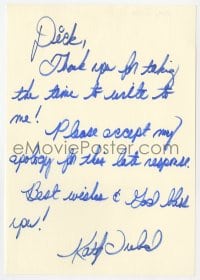 Dick,
Thank you for taking
the time to write to
me!
Please accept my
apology for this late response.
Best wishes & God bless
you!
Kathy
eMoviePoster.com